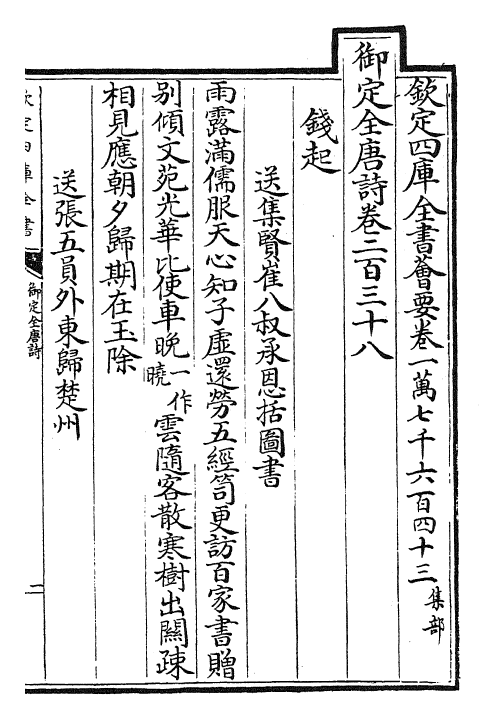 欽定四庫全書薈要卷一萬七千六百四十三 集部
御定全唐詩卷二百三十八
錢起
送集賢崔八叔承恩括圖書
雨露滿儒服天心知子虛還勞五經笥更訪百家書贈
别傾文苑光華比使車晚一作曉雲隨客散寒樹出關疎
相見應朝夕歸期在玉除
送張五員外東歸楚州
欽定四庫全書
御定全唐詩